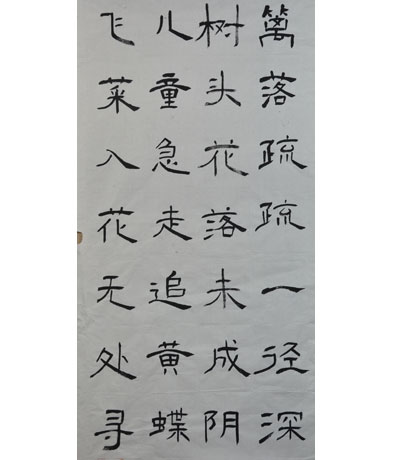 篱落疏疏一径深
树头花落未成阴
儿童急走追黄蝶
飞菜入花无处寻